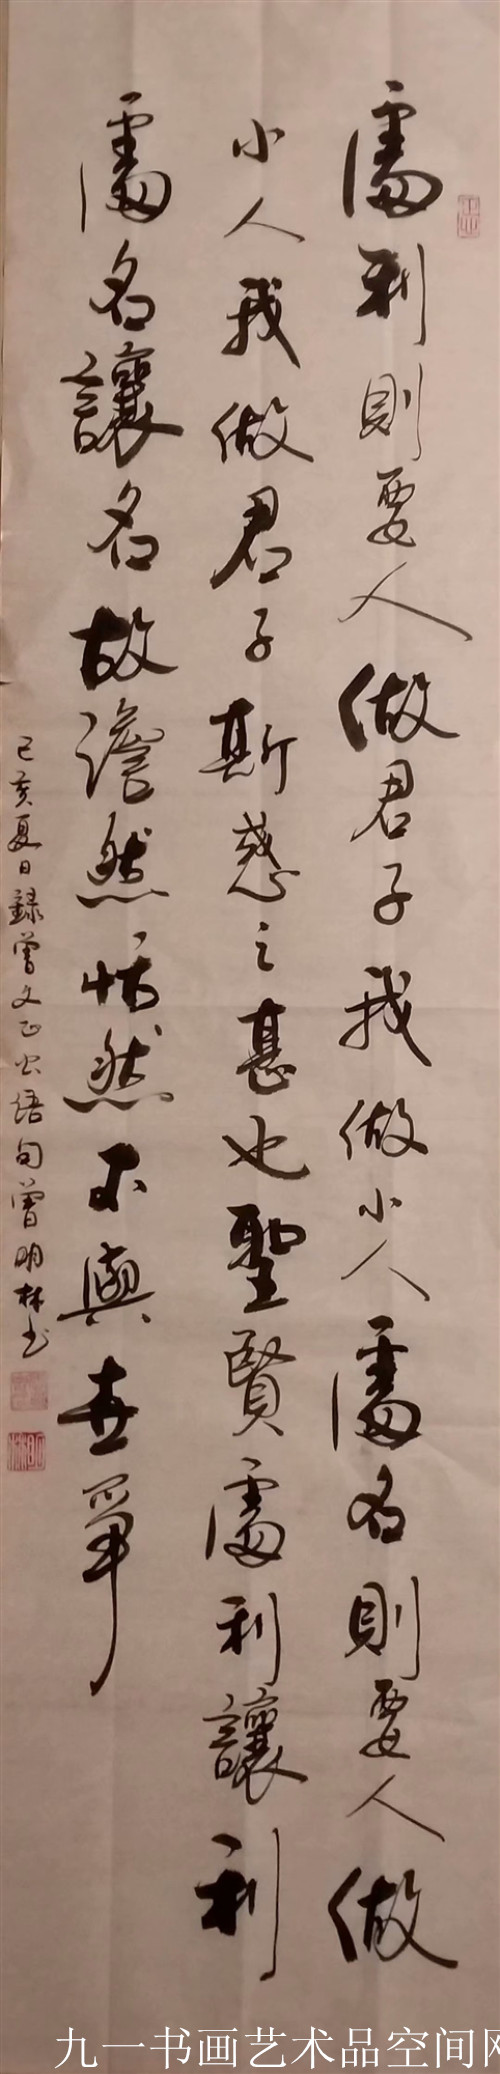 處利則要人做君子我做小人處名則要人做
小人我做君子斯惑之甚也聖賢處利讓利
處名讓名故澹然恬然不與世爭
己亥夏日録曾文正公語句曾明林书
九一书画艺术品空间网